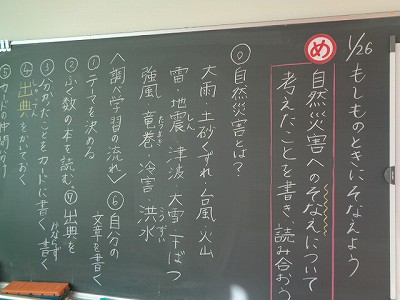 1/26
もしものときにそなえよう
め
自然災害へのそなえについて
考えたことを書き、読み合おう
⓪自然災害とは?
大雨・土砂くずれ・台風・火山
雷・地震・津波・大雪・干ばつ
強風・竜巻・冷害・洪水
たつまき
こうずい
〈調べ学習の流れ〉
①テーマを決める
②ふく数の本を読む。
③分かったことをカードに書く
④出典をかいておく
しゅってん
⑤カードの仲間分け
⑥自分の
文章を書く
⑦出典を
かならず
書く